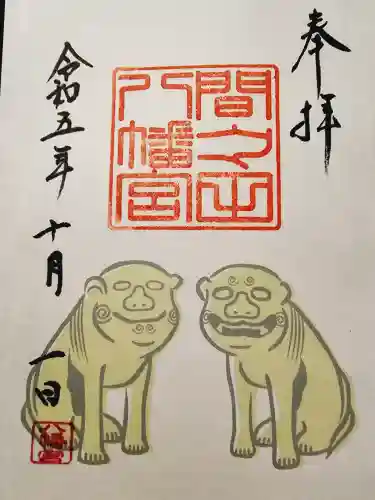 奉拝
間々田
八幡宮
令和五年十月一日